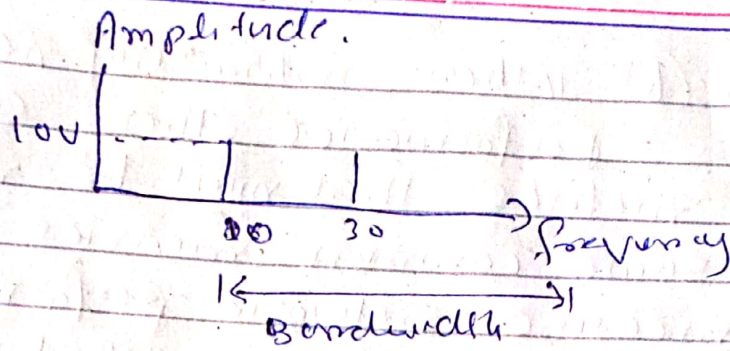 Amplitude.
10V
10 30
frequency
Bandwidth